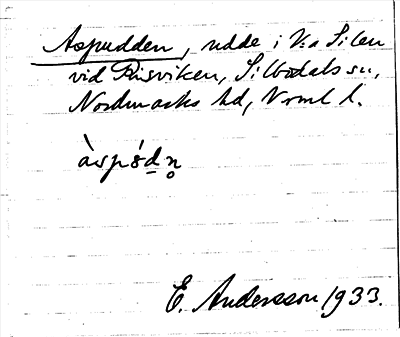 Aspudden, udde i V:a Silen
vid Risviken, Silbodals sn,
Nordmarks hd, Vrml l.
àspó̀dn̥
E. Andersson 1933.